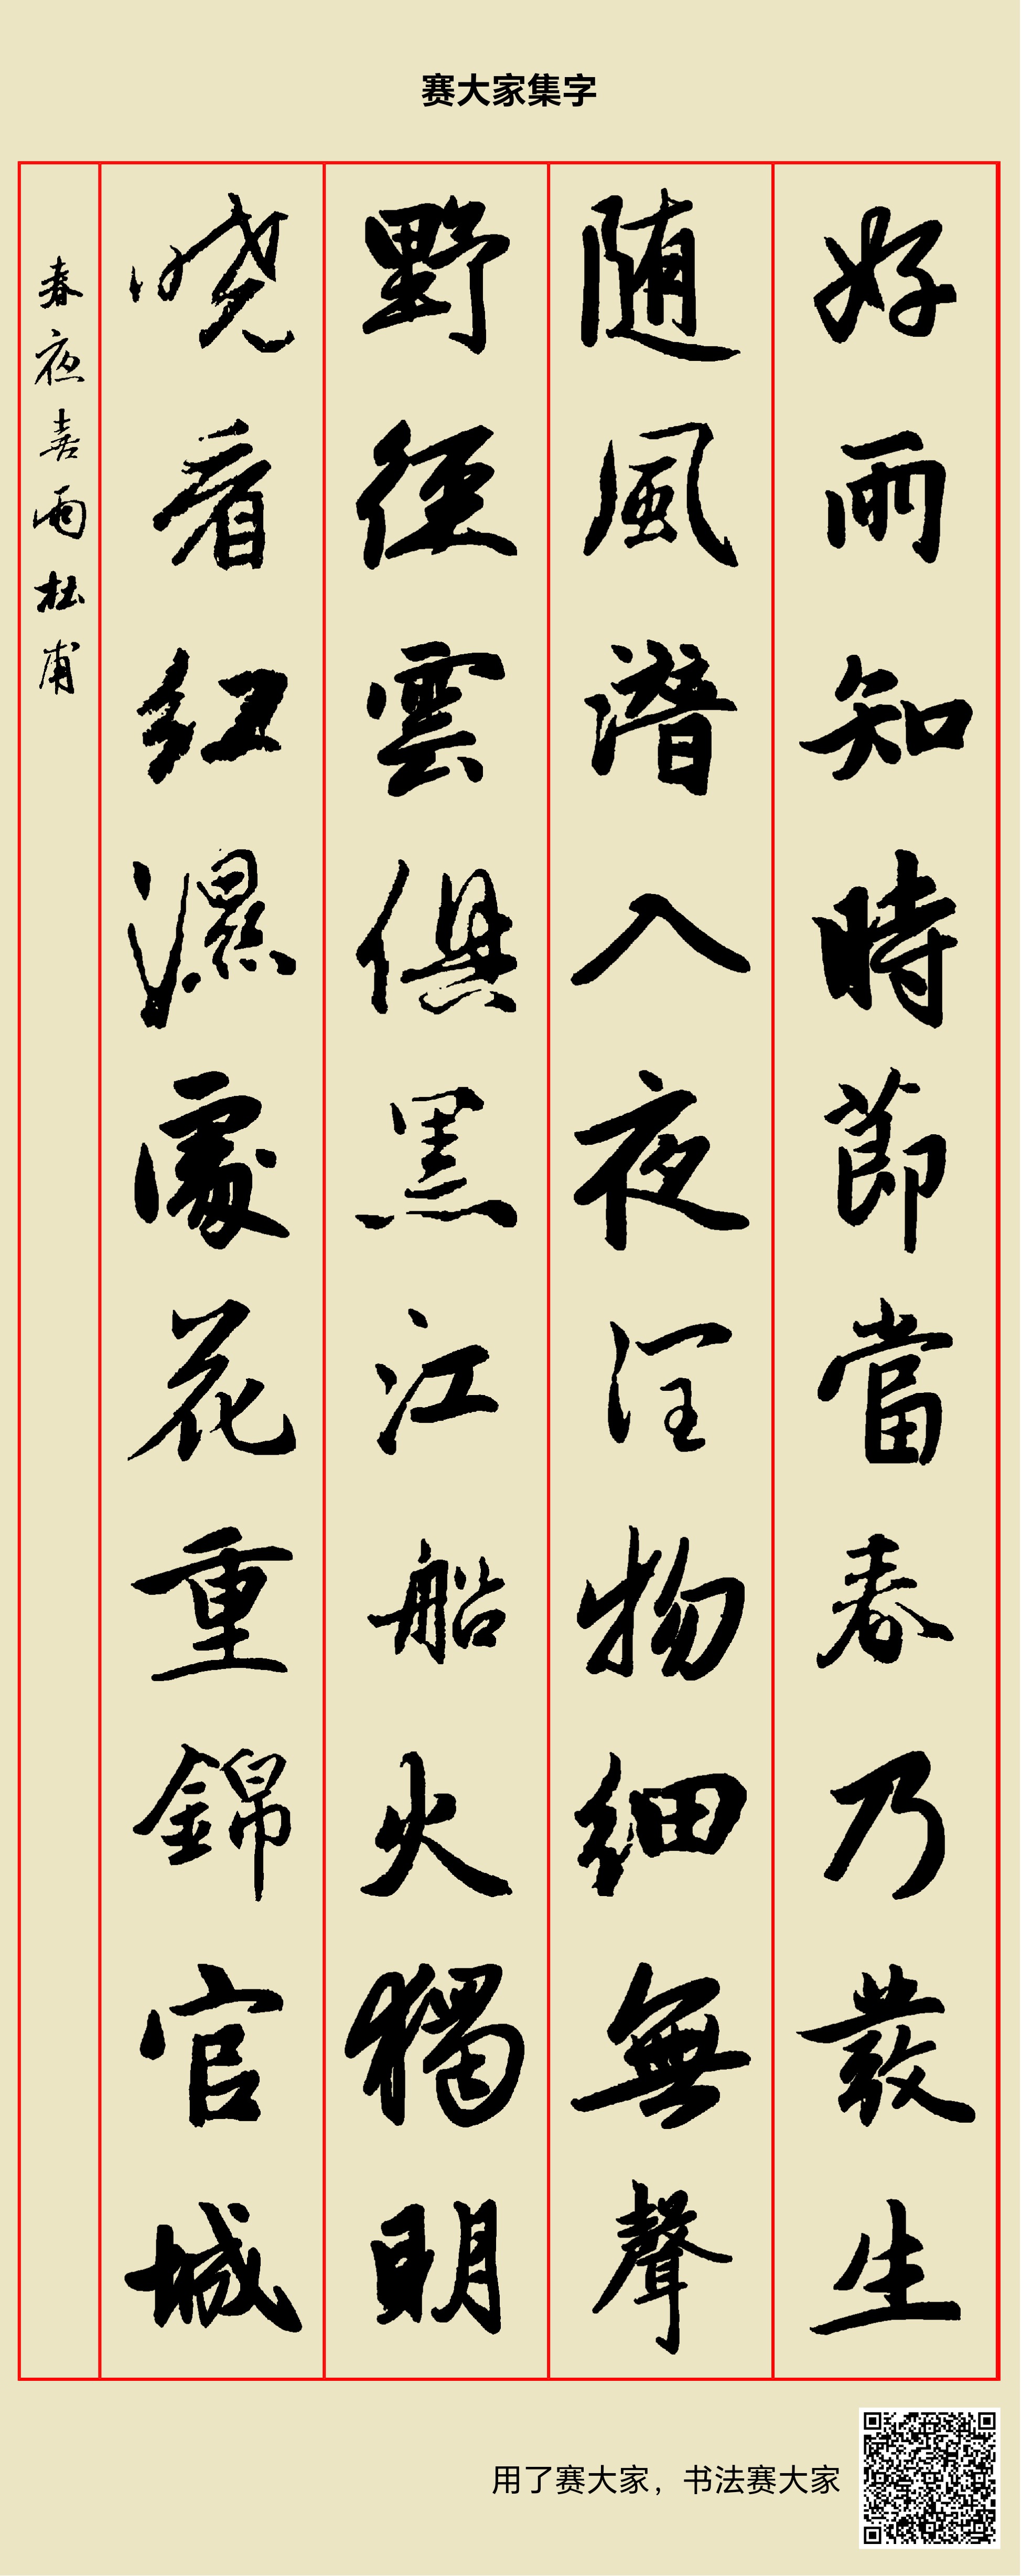 赛大家集字
好雨知時節當春乃發生
随風潛入夜润物細無聲
野径雲俱黑江船火獨明
晓看红濕處花重錦官城
春夜喜雨杜甫
用了赛大家，书法赛大家